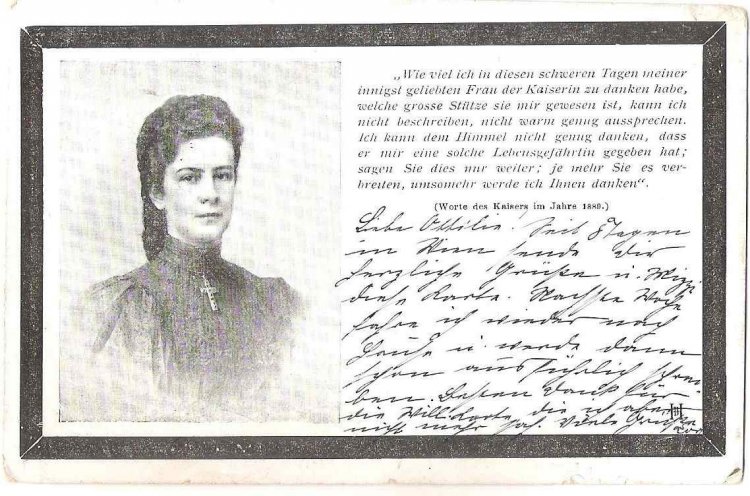 „Wie viel ich in diesen schweren Tagen meiner
innigst geliebten Frau der Kaiserin zu danken habe,
welche grosse Stütze sie mir gewesen ist, kann ich
nicht beschreiben, nicht warm genug aussprechen.
Ich kann dem Himmel nicht genug danken, dass
er mir eine solche Lebensgefährtin gegeben hat;
sagen Sie dies nur weiter; je mehr Sie es ver-
breiten, umsomehr werde ich Ihnen danken“.
(Worte des Kaisers im Jahre 1889.)
Liebe Ottilie. Seit 8 Tagen
in Wien sende Dir
herzliche Grüße u.
diese Karte. Nächste Woche
fahre ich wieder nach
Hause u. werde dann
schon ausführlich schrei-
ben. Besten Dank für
die Karte, die
nicht mehr Viele Grüße